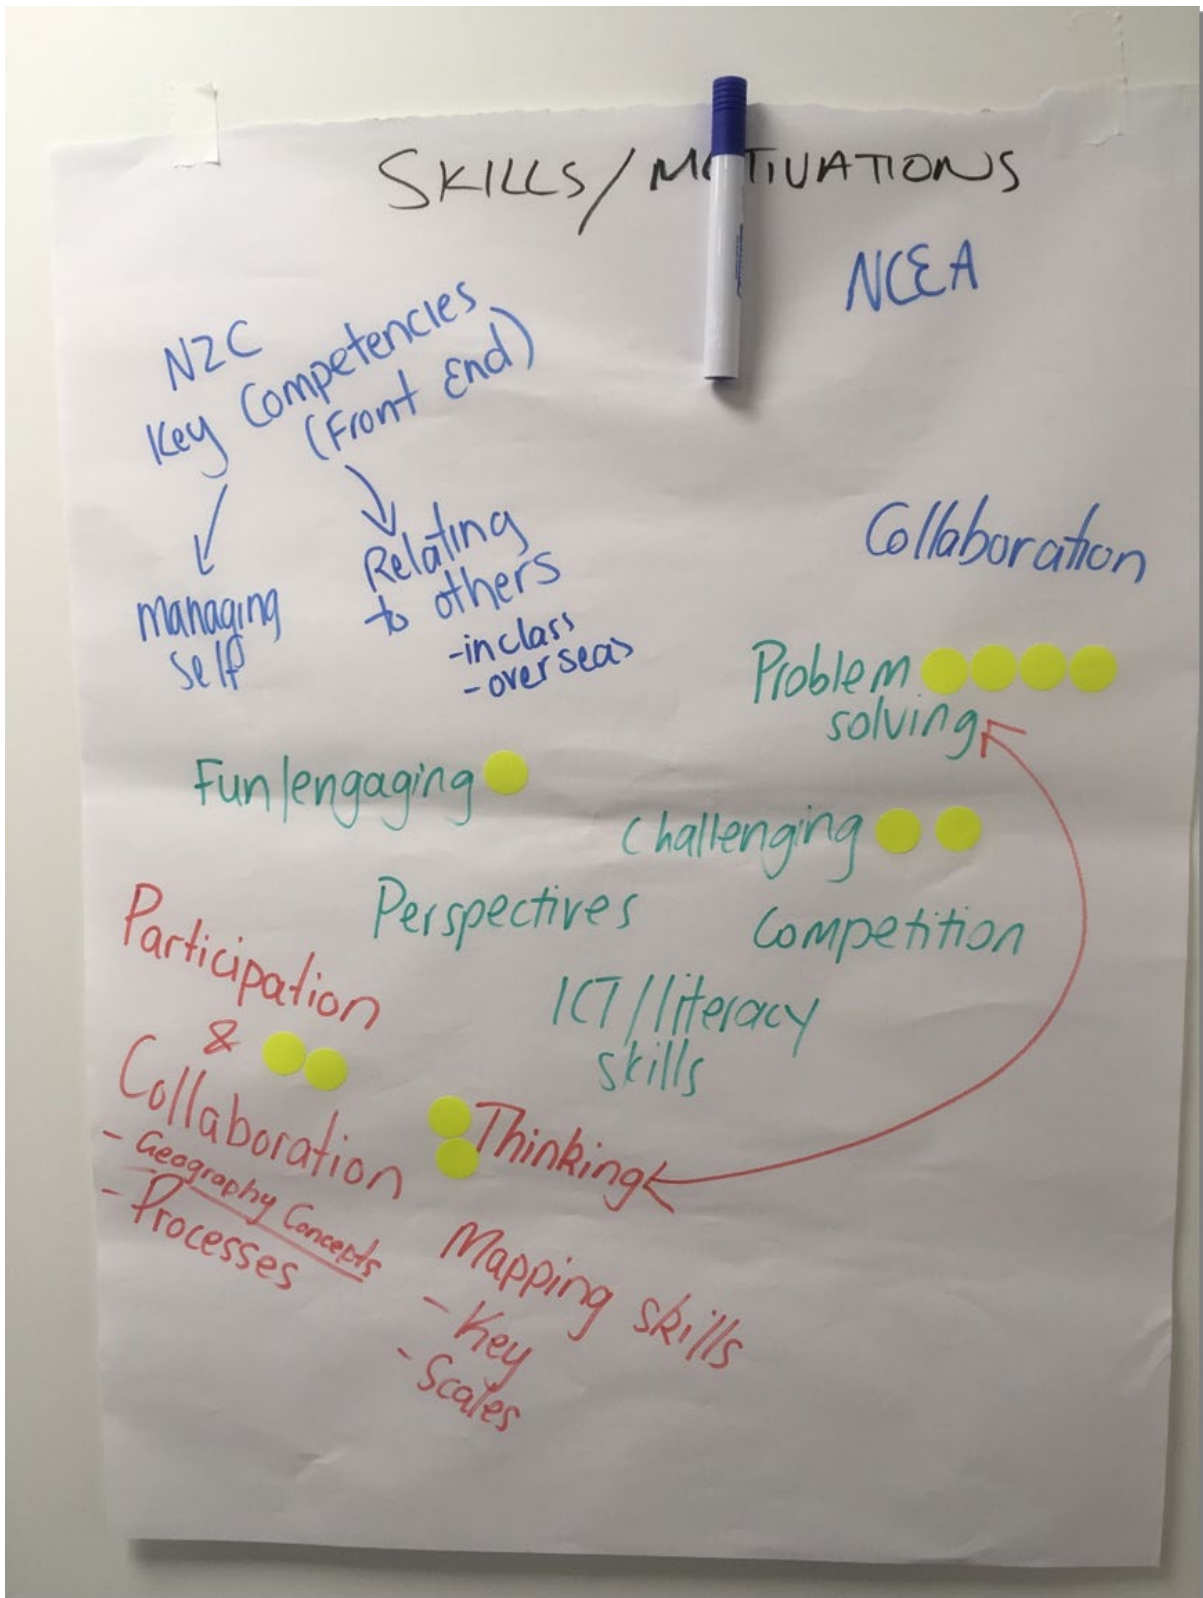 SKILLS/MOTIVATIONS
NCEA
NZC
Key Competencies
(Front End)
Managing
self
Relating
to others
-in class
-overseas
Collaboration
Problem
solving
Fun/engaging
Challenging
Perspectives
Competition
ICT/literacy
skills
Participation
&
Collaboration
- Geography Concepts
- Processes
Thinking
Mapping skills
- Key
- Scales